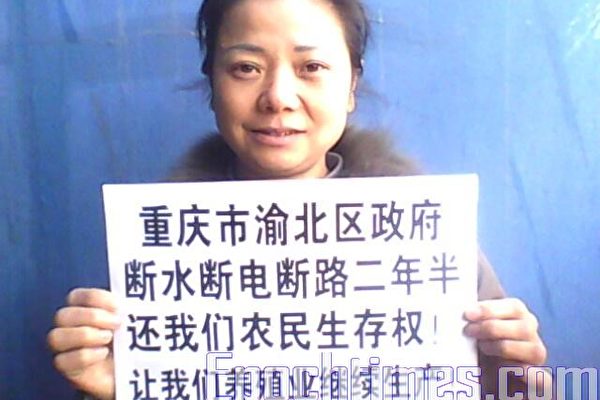 重庆市渝北区政府
断水断电断路二年半
还我们农民生存权！
让我们养殖业继续生产
Epochtimes.com